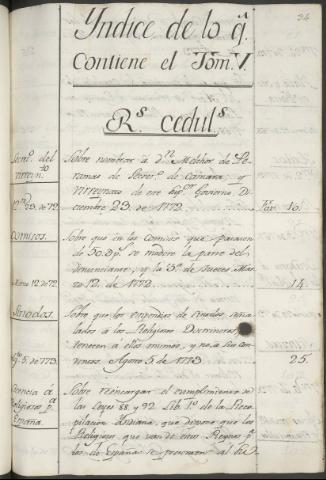 34
Yndice de lo q.^e
Contiene el Tom. V.
R.^s cedul.^s
Secret.^o del
virrein.^to
Sobre nombrar á D.^n Melchor de Pe-
ramas de Secret.^o de Camara y
Virreynato de este Sup.^or Govierno. Di-
D.^re 23. de 72.
ciembre 23 de 1772
Fox 10.
Comisos.
Sobre que en los Comisos que pasaren
de 50 D p.^s se modere la parte del
denunciante, y la de Jueces Mar-
Marzo 12. de 72.
zo 12. de 1772.
14
Sinodos.
Sobre que los estipendios de Sinodos, seña-
lados á los Religiosos Doctrineros,
tenecen á ellos mismos, y no á sus Con-
Ag.^to 5. de 773.
ventos. Agosto 5 de 1773
25
Licencia á
Religiosos p.^a
España.
Sobre reencargar el cumplimiento de
las Leyes 88. y 92 Lib. 1.^o de la Reco-
pilacion Indiana, que dispone que los
Religiosos que van de estos Reynos p.^a
los de España se presenten al